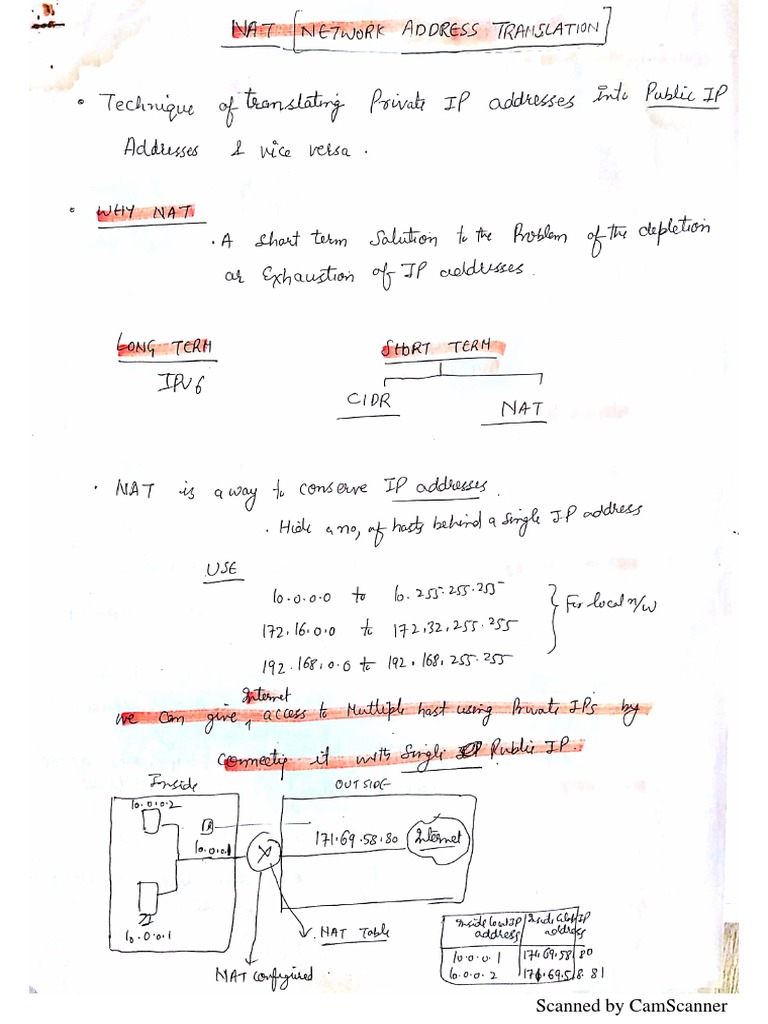 NAT [NETWORK ADDRESS TRANSLATION]
• Technique of translating Private IP addresses into Public IP
Addresses & vice versa.
• WHY NAT
• A short term solution to the Problem of the depletion
or Exhaustion of IP addresses.
LONG TERM SHORT TERM
IPV6
CIDR NAT
• NAT is a way to conserve IP addresses.
• Hide a no, of hosts behind a single IP address
USE
10.0.0.0 to 10.255.255.255
172.16.0.0 to 172.32.255.255 } For local n/w
192.168.0.0 to 192.168.255.255
Internet
we can give, access to Multiple host using Private IPs by
connectig it with Single Public IP.
Inside OUTSIDE
10.0.0.2
171.69.58.80 Internet
10.0.0.1
10.0.0.1
NAT Table
NAT configured.
Inside Local IP address Inside Glob IP address
10.0.0.1 171.69.58.80
10.0.0.2 171.69.58.81
Scanned by CamScanner